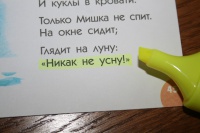 И куклы в кровати.
Только Мишка не спит.
На окне сидит;
Глядит на луну:
«Никак не усну!»